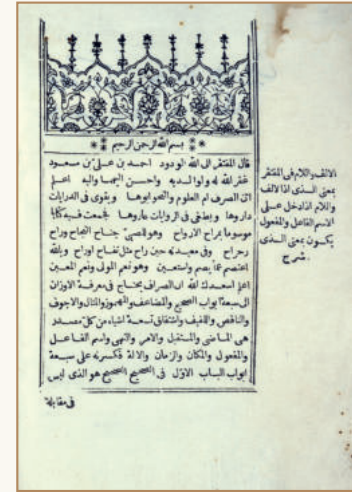 بسم الله الرحمن الرحيم
قال المفتقر الى الله الودود احمد بن على بن مسعود
غفر الله له ولوالديه واحسن اليهما واليه اعلم
ان الصرف ام العلوم والنحو ابوها ويقوى فى الدرايات
داروها ويطغى فى الروايات عاروها فجمعت فيه كتابا
موسوما بمراح الارواح وهو للصبى جناح النجاح وراح
رحراح وفى معدته حين راح مثل تفاح اوراح وبالله
اعتصم عما يصم واستعين وهو نعم المولى ونعم المعين
اعلم اسعدك الله ان الصراف يحتاج فى معرفة الاوزان
الى سبعة ابواب الصحيح والمضاعف والمهموز والمثال والاجوف
والناقص واللفيف واشتقاق تسعة اشياء من كل مصدر
هى الماضى والمستقبل والامر والنهى واسم الفاعل
والمفعول والمكان والزمان والالة فكسرته على سبعة
ابواب الباب الاول فى الصحيح الصحيح هو الذى ليس
فى مقابلة
الالف واللام فى المفتقر
بمعنى الذى اذا الالف
واللام اذا دخل على
الاسم الفاعل والمفعول
يكون بمعنى الذى
شرح